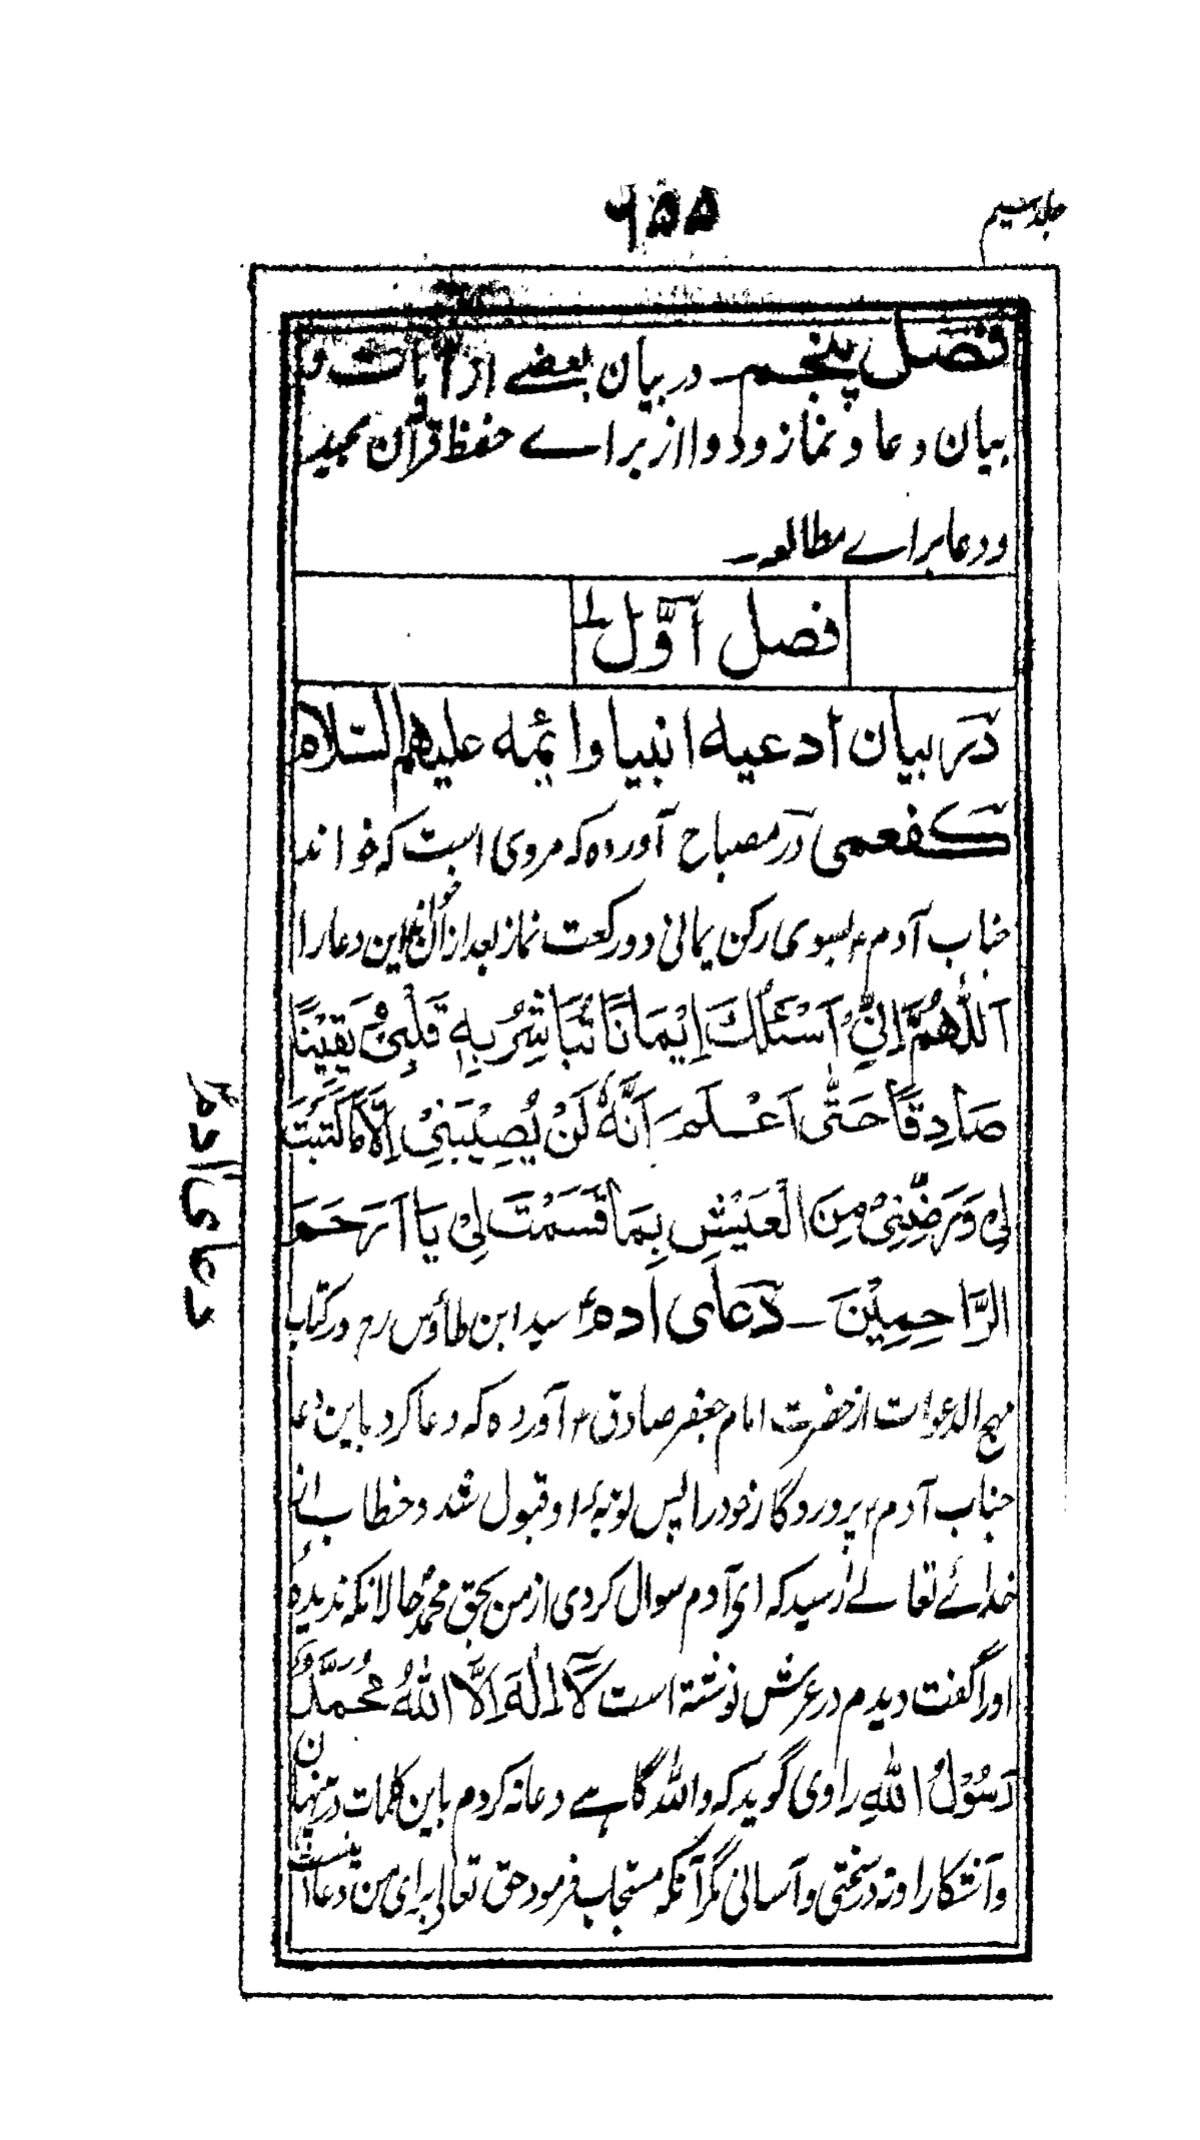 جلد سیم
۶۵۵
فصل پنجم در بیان بعضے از آیات و
بیان دعا و نماز و دوا از براے حفظ قرآن مجید
و دعا براے مطالعہ
فصل اَوَّل
دَر بیان ادعیه انبیا و ائمه علیهم السّلام
کفعمی در مصباح آورده که مروی است که خواند
جناب آدمؑ بسوی رکن یمانی دو رکعت نماز بعد از ان خواند این دعا را
اَللّٰهُمَّ اِنِّیْ اَسْئَلُكَ اِیْمَانًا تُبَاشِرُ بِهٖ قَلْبِیْ وَیَقِیْنًا
صَادِقًا حَتّٰی اَعْلَمَ اَنَّهٗ لَنْ یُصِیْبَنِیْ اِلَّا مَا کَتَبْتَ
لِیْ وَرَضِّنِیْ مِنَ الْعَیْشِ بِمَا قَسَمْتَ لِیْ یَا اَرْحَمَ
الرَّاحِمِیْنَ ـ دَعای ادمؑ سید ابن طاؤس رح در کتاب
مهج الدعوات از حضرت امام جعفر صادقؑ آورده که دعا کرد باین دعا
جناب آدمؑ پروردگار خود را پس توبهٔ او قبول شد و خطاب از
خدائے تعالے رسید که ای آدم سوال کردی از من بحق محمدؐ حالانکه ندیدهٔ
اورا گفت دیدم در عرش نوشته است لَآ اِلٰهَ اِلَّا اللهُ مُحَمَّدٌ
رَسُوْلُ اللهِ راوی گوید که والله گاہے دعا نه کردم باین کلمات در پنهان
و آشکارا و نه در سختی و آسانی مگر آنکه مستجاب فرمود حق تعالی برای من دعا
دعای ادمؑ